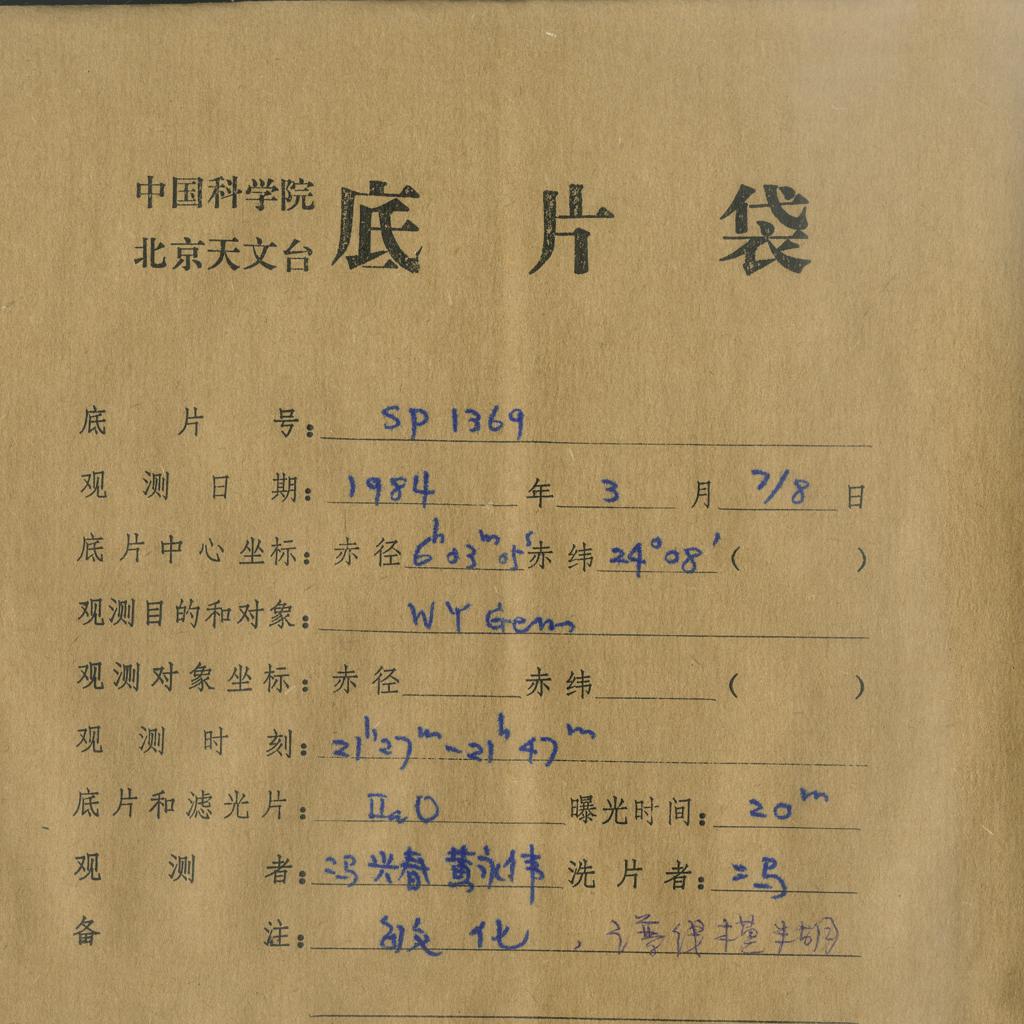 中国科学院
北京天文台 底片袋
底片号: SP 1369
观测日期: 1984 年 3 月 7/8 日
底片中心坐标: 赤径 6ʰ03ᵐ05ˢ 赤纬 24°08′ ( )
观测目的和对象: WY Gem
观测对象坐标: 赤径 赤纬 ( )
观测时刻: 21ʰ27ᵐ-21ʰ47ᵐ
底片和滤光片: IIaO 曝光时间: 20ᵐ
观测者: 冯兴春 黄永伟 洗片者: 冯
备注: 敏化, 谱线模糊